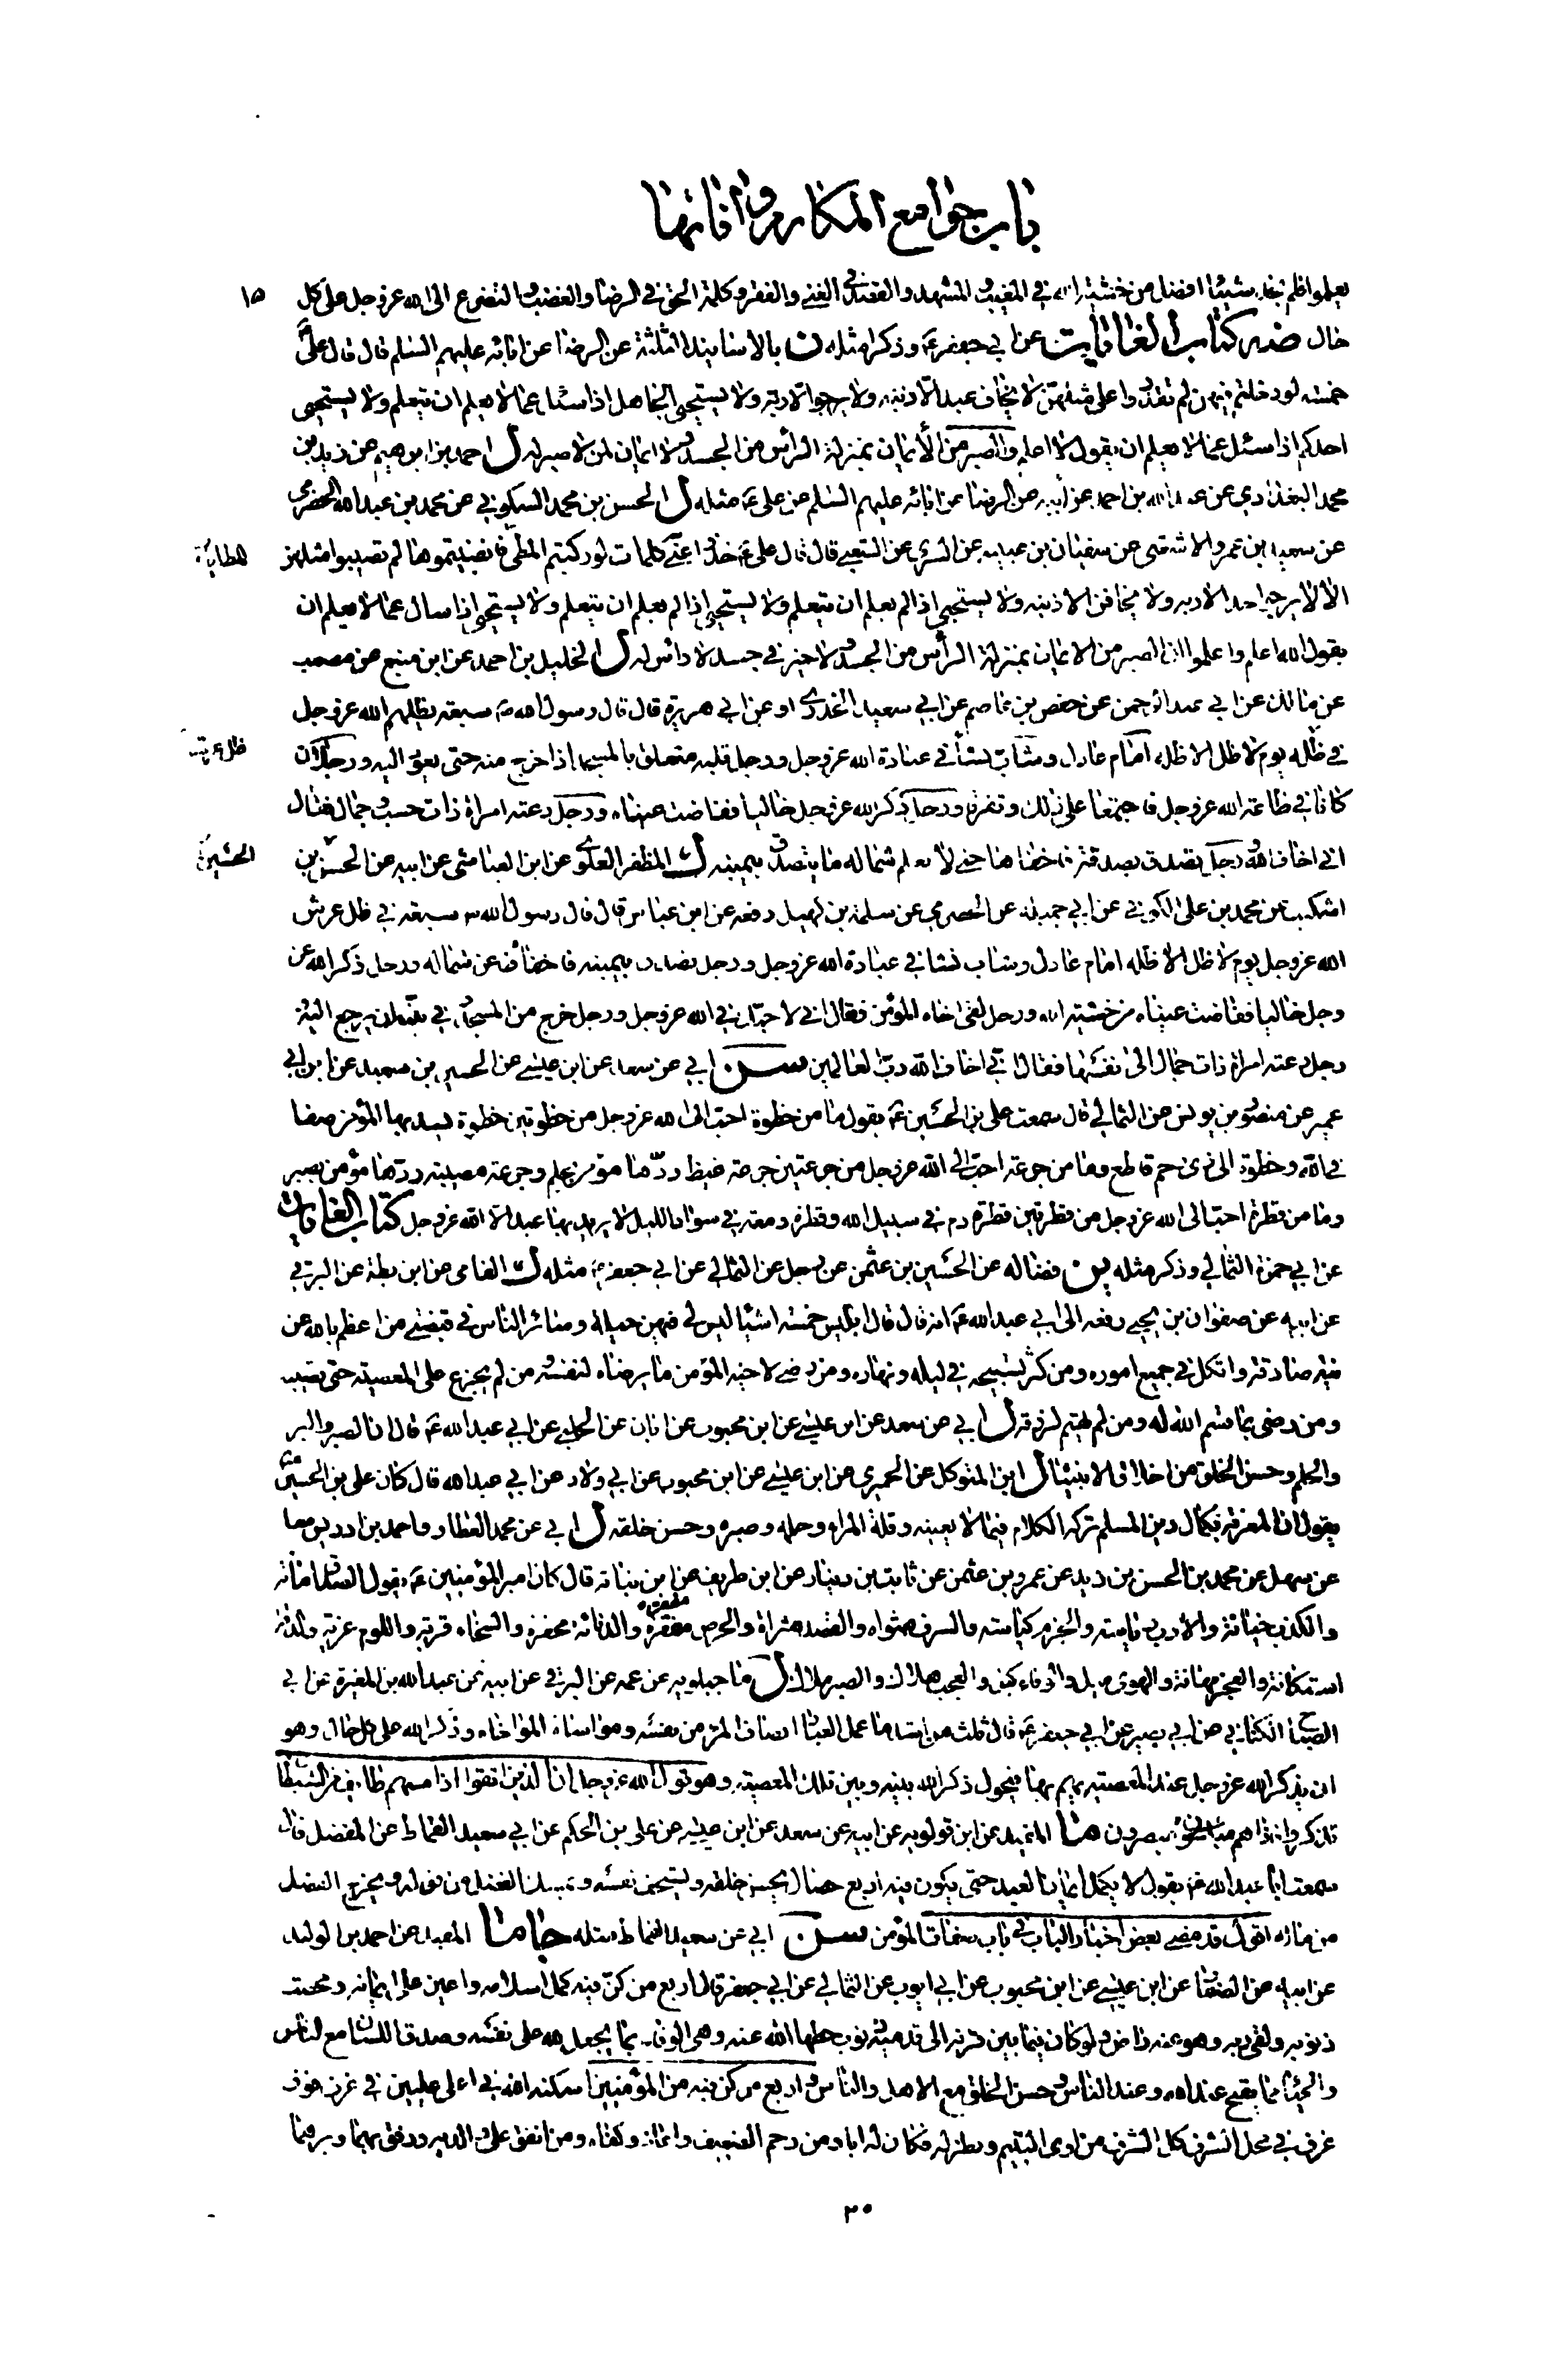 باب جوامع المكارم وافاتها
يعلموا فلم نجد شيئا افضل من خشية الله في المغيب والمشهد والقصد في الغنى والفقر وكلمة الحق في الرضا والغضب والتضرع الى الله عز وجل على كل
١٥
حال ضه كتاب الغايات عن ابي جعفر ع وذكر مثله ن بالاسانيد الثلثة عن الرضا عن ابائه عليهم السلم قال قال علي ع
خمسة لو رحلتم فيهن لم تقدروا على مثلهن لا يخاف عبد الا ذنبه ولا يرجو الا ربه ولا يستحيي الجاهل اذا سئل عما لا يعلم ان يتعلم ولا يستحيي
احدكم اذا سئل عما لا يعلم ان يقول لا اعلم والصبر من الأيمان بمنزلة الرأس من الجسد ولا ايمان لمن لا صبر له ل احمد بن ابرهيم عن زيد بن
محمد البغدادي عن عبد الله بن احمد عن أبيه عن الرضا عن ابائه عليهم السلم عن علي ع مثله ل الحسن بن محمد السكوني عن محمد بن عبد الله الحضرمي
عن سعيد بن عمرو الاشعثي عن سفيان بن عيينه عن السري عن الشعبي قال قال علي ع خذوا عني كلمات لو ركبتم المطي فانضيتموها لم تصيبوا مثلهن
المطايا خ
الا لا يرجو احد الا ربه ولا يخافن الا ذنبه ولا يستحيي اذا لم يعلم ان يتعلم ولا يستحيي اذا لم يعلم ان يتعلم ولا يستحيي اذا سال عما لا يعلم ان
يقول الله اعلم واعلموا ان الصبر من الايمان بمنزلة الرأس من الجسد ولا خير في جسد لا رأس له ل الخليل بن احمد عن ابن منيع عن مصعب
عن مالك عن ابي عبد الرحمن عن حفص بن عاصم عن ابي سعيد الخدري او عن ابي هريرة قال قال رسول الله ص سبعة يظلهم الله عز وجل
في ظله يوم لا ظل الا ظله امام عادل وشاب نشأ في عبادة الله عز وجل ورجل قلبه متعلق بالمسجد اذا خرج منه حتى يعود اليه ورجلان
ظل عرشه
كانا في طاعة الله عز وجل فاجتمعا على ذلك وتفرقا ورجل ذكر الله عز وجل خاليا ففاضت عيناه ورجل دعته امراة ذات حسب وجمال فقال
اني اخاف الله ورجل تصدق بصدقة فاخفاها حتى لا تعلم شماله ما يتصدق بيمينه ل المظفر العلوي عن ابن العياشي عن ابيه عن الحسن بن
الحسين خ
اشكيب عن محمد بن علي الكوفي عن ابي جميله عن الحضرمي عن سلمة بن كهيل رفعه عن ابن عباس قال قال رسول الله ص سبعة في ظل عرش
الله عز وجل يوم لا ظل الا ظله امام عادل وشاب نشا في عبادة الله عز وجل ورجل تصدق بيمينه فاخفاه عن شماله ورجل ذكر الله عز
وجل خاليا ففاضت عيناه من خشية الله ورجل لقي اخاه المؤمن فقال اني لاحبك في الله عز وجل ورجل خرج من المسجد وفي نيته ان يرجع اليه
ورجل دعته امراة ذات جمال الى نفسها فقال اني اخاف الله رب العالمين سن ابي عن سعد عن ابن عيسى عن الحسين بن سعيد عن ابن ابي
عمير عن منصور بن يونس عن الثمالي قال سمعت علي بن الحسين ع يقول ما من خطوة احب الى الله عز وجل من خطوتين خطوة يسد بها المؤمن صفا
في الله وخطوة الى ذي رحم قاطع وما من جرعة احب الى الله عز وجل من جرعتين جرعة غيظ ردها مؤمن بحلم وجرعة مصيبة ردها مؤمن بصبر
وما من قطرة احب الى الله عز وجل من قطرتين قطرة دم في سبيل الله وقطرة دمعة في سواد الليل لا يريد بها عبد الا الله عز وجل كتاب الغايات
عن ابي حمزة الثمالي وذكر مثله ين فضاله عن الحسين بن عثمن عن رجل عن الثمالي عن ابي جعفر ع مثله ل الفامي عن ابن بطة عن البرقي
عن ابيه عن صفوان بن يحيى رفعه الى ابي عبد الله ع انه قال قال ابليس خمسة اشيا ليس لي فيهن حيلة وسائر الناس في قبضتي من اعتصم بالله عن
نية صادقة واتكل في جميع اموره ومن كثر تسبيحه في ليله ونهاره ومن رضي لاخيه المؤمن ما يرضاه لنفسه ومن لم يجزع على المصيبة حتى تصيبه
ومن رضي بما قسم الله له ومن لم يهتم لرزقه ل ابي عن سعد عن ابن عيسى عن ابن محبوب عن ابان عن الحلبي عن ابي عبد الله ع قال ان الصبر والبر
والحلم وحسن الخلق من اخلاق الانبياء ل ابن المتوكل عن الحميري عن ابن عيسى عن ابن محبوب عن ابي ولاد عن ابي عبد الله قال كان علي بن الحسين ع
يقول ان المعرفة بكمال دين المسلم تركه الكلام فيما لا يعنيه وقلة المراء وحلمه وصبره وحسن خلقه ل ابي عن محمد العطار واحمد بن ادريس معا
عن سهل عن محمد بن الحسن بن زيد عن عمرو بن عثمن عن ثابت بن دينار عن ابن طريف عن ابن نباته قال كان امير المؤمنين ع يقول الصدق امانة
والكذب خيانة والادب رياسة والحزم كياسة والسرف مثواه والقصد مثراة والحرص مفقرة والدنائة محقرة والسخاء قربة واللوم غربة والدقة
استكانة والعجز مهانة والهوى ميل والوفاء كيل والعجب هلاك والصبر ملاك ل ماجيلويه عن عمه عن البرقي عن ابيه عن عبد الله بن المغيرة عن ابي
الصباح الكناني عن ابي بصير عن ابي جعفر ع قال ثلث من اشد ما عمل العباد انصاف المرء من نفسه ومواساة المرء اخاه وذكر الله على كل حال وهو
ان يذكر الله عز وجل عند المعصية يهم بها فيحول ذكر الله بينه وبين تلك المعصية وهو قول الله عز وجل ان الذين اتقوا اذا مسهم طائف من الشيطان
تذكروا فاذا هم مبصرون ما المفيد عن ابن قولويه عن ابيه عن سعد عن ابن عيسى عن علي بن الحكم عن ابي سعيد القماط عن المفضل قال
سمعت ابا عبد الله ع يقول لا يكمل ايمان العبد حتى يكون فيه اربع خصال يحسن خلقه ويستخف نفسه ويمسك الفضل من قوله ويخرج الفضل
من ماله اقول قد مضى بعض اخبار الباب في باب صفات المؤمن سن ابي عن سعيد القماط مثله جا ما المفيد عن احمد بن الوليد
عن ابيه عن الصفار عن ابن عيسى عن ابن محبوب عن ابي ايوب عن الثمالي عن ابي جعفر قال اربع من كن فيه كمل اسلامه واعين على ايمانه ومحصت
ذنوبه ولقي ربه وهو عنه راض ولو كان فيما بين قرنه الى قدميه ذنوب حطها الله عنه وهي الوفاء بما يجعل لله على نفسه وصدق اللسان مع الناس
والحياء مما يقبح عند الله وعند الناس وحسن الخلق مع الاهل والناس واربع من كن فيه من المؤمنين اسكنه الله في اعلى عليين في غرف فوق
غرف في محل الشرف كل الشرف من اوى اليتيم ونظر له فكان له ابا ومن رحم الضعيف واعانه وكفاه ومن انفق على والديه ورفق بهما وبرهما
٢٥